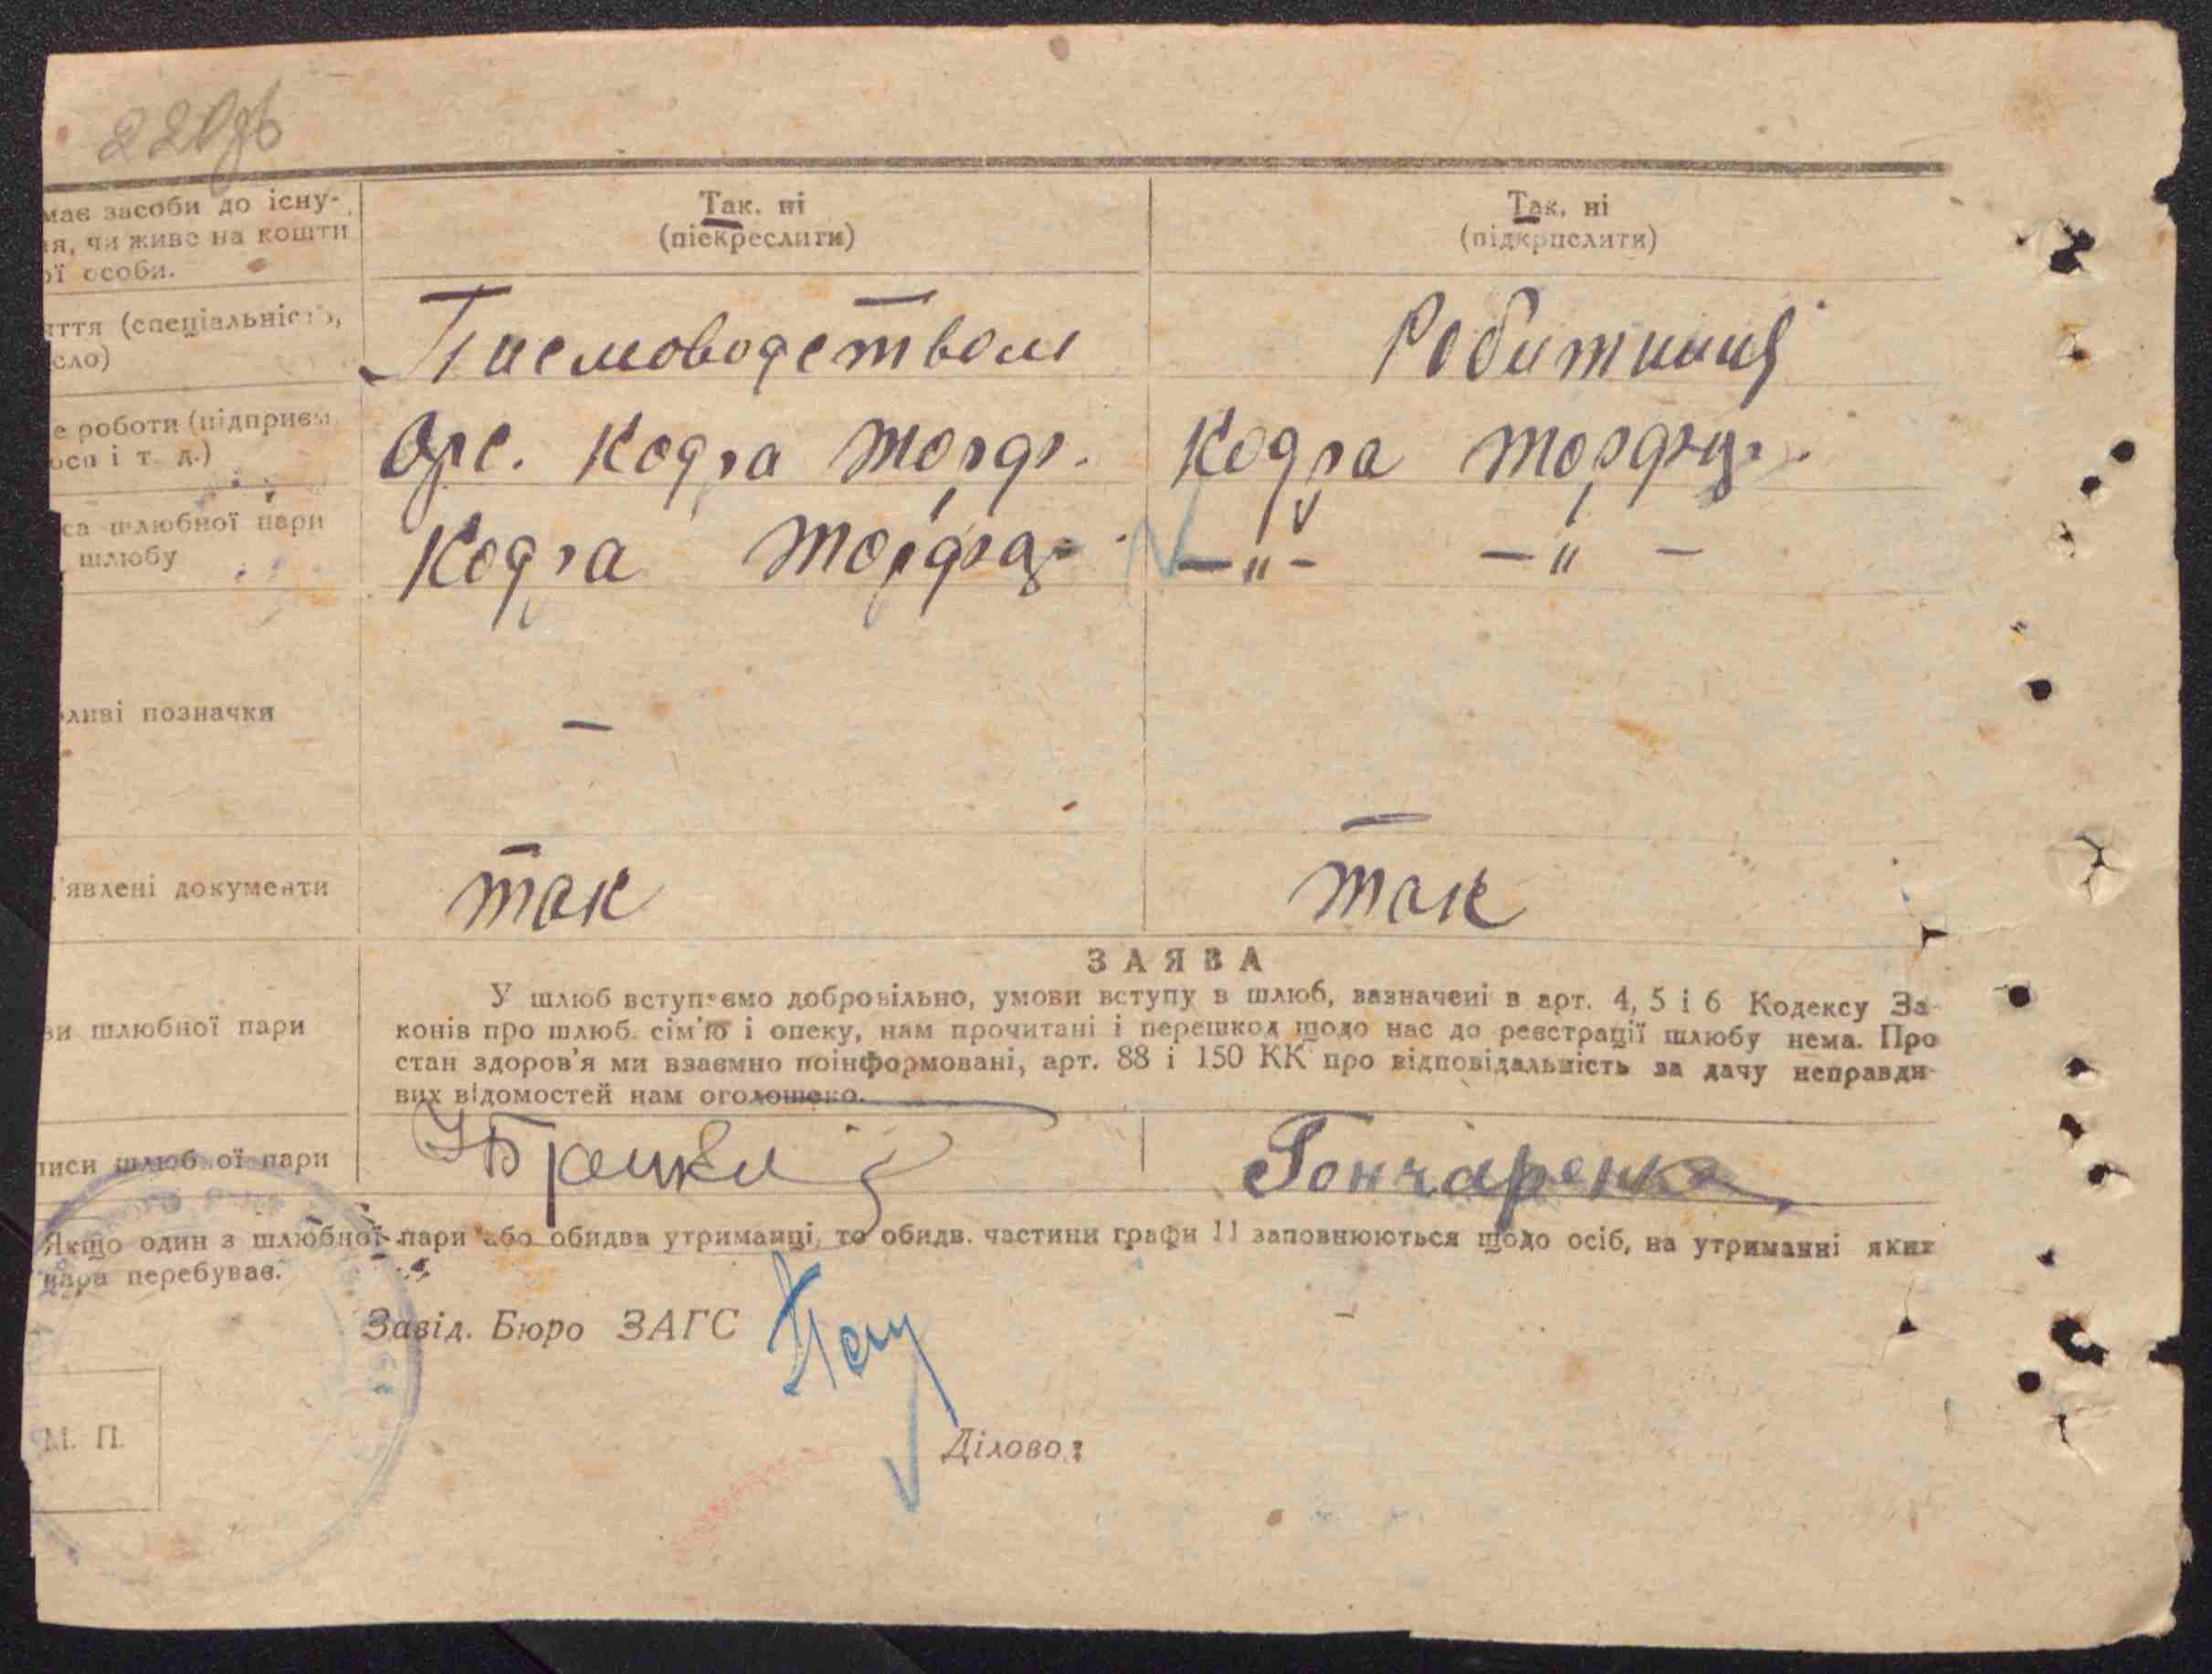 220зв
має засоби до існу-
ня, чи живе на кошти
ої особи.
Так, ні
(піекреслити)
Так, ні
(підкрпслити)
яття (спеціальність,
сло)
Писмоводством
Робитниця
е роботи (підприєм
оса і т. д.)
Орс. Кодра торф.
Кодра торфза.
са шлюбної пари
шлюбу
Кодра торфза.
— " — — " —
ливі позначки
—
'явлені документи
так
так
ЗАЯВА
ви шлюбної пари
У шлюб вступаємо добровільно, умови вступу в шлюб, зазначені в арт. 4, 5 і 6 Кодексу За-
конів про шлюб. сім'ю і опеку, нам прочитані і перешкод щодо нас до реєстрації шлюбу нема. Про
стан здоров'я ми взаємно поінформовані, арт. 88 і 150 КК про відповідальність за дачу неправди-
вих відомостей нам оголошено.
писи шлюбної пари
Гончаренко
Якщо один з шлюбної пари або обидва утриманці, то обидв. частини графи 11 заповнюються щодо осіб, на утриманні яких
пара перебуває.
Завід. Бюро ЗАГС
М. П.
Діловод